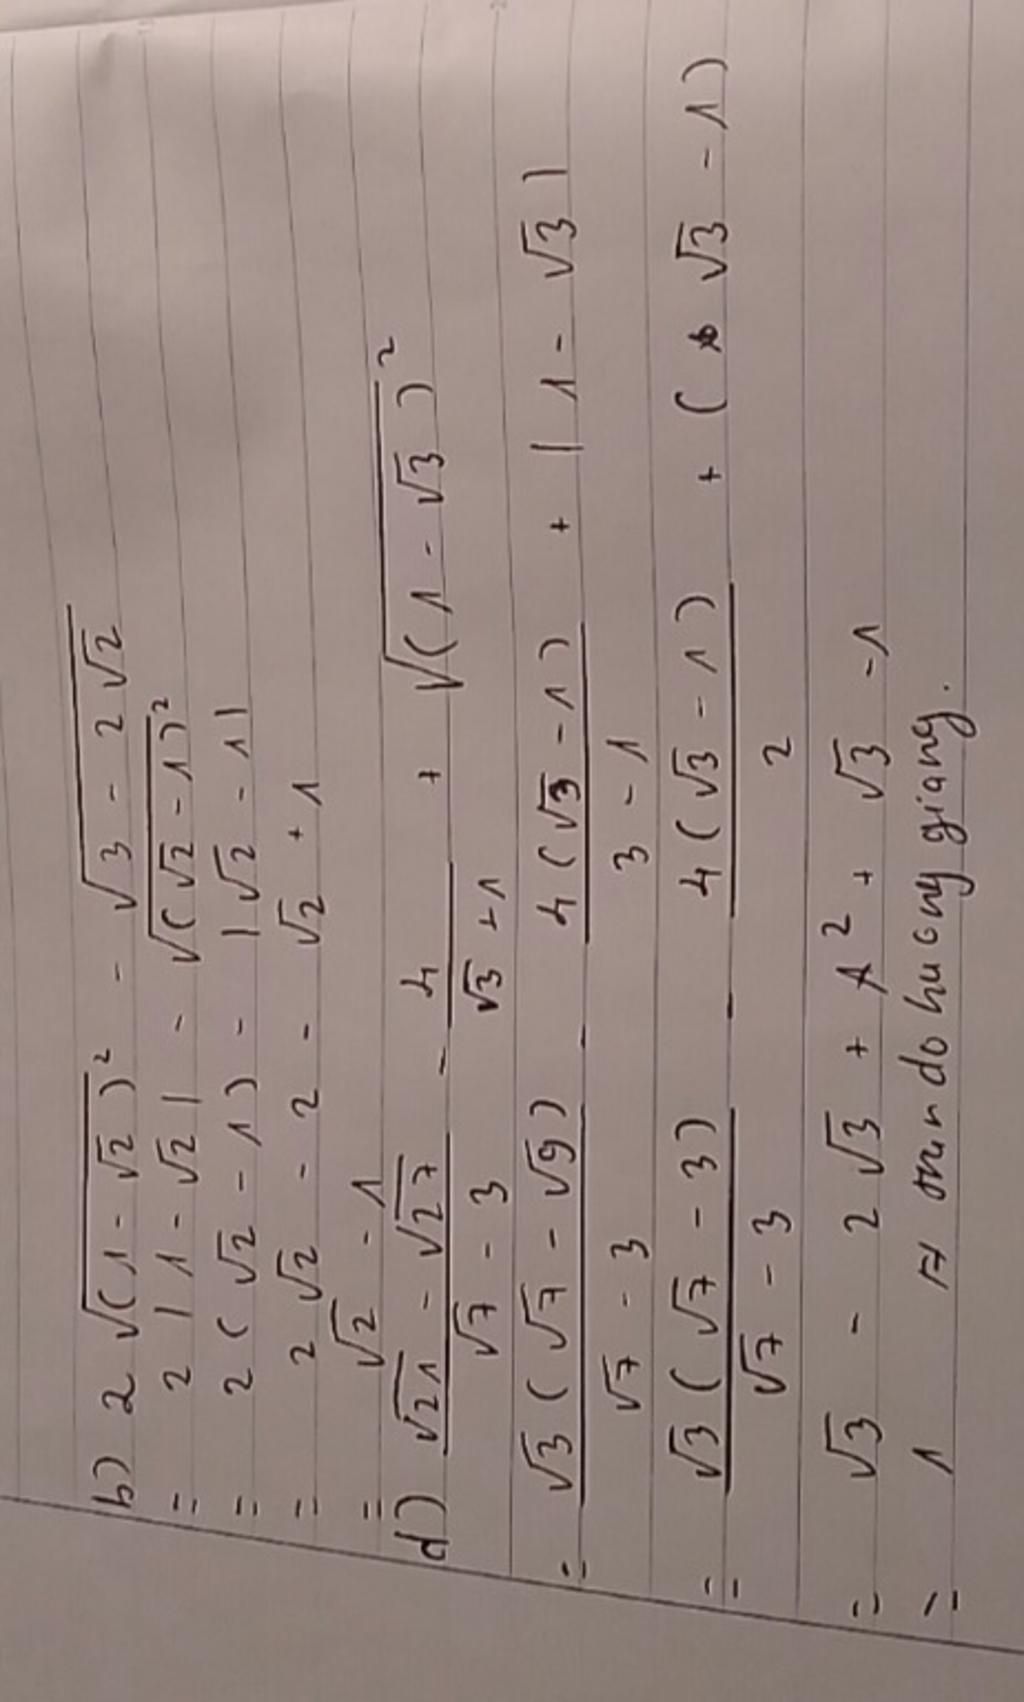 b) 2√(1 - √2)² - √3 - 2√2
= 2 | 1 - √2 | - √(√2 - 1)²
= 2 ( √2 - 1 ) - | √2 - 1 |
= 2√2 - 2 - √2 + 1
= √2 - 1
d) √21 - √27 / √7 - 3 - 4 / √3 + 1 + √(1 - √3)²
= √3 ( √7 - √9 ) / √7 - 3 - 4 ( √3 - 1 ) / 3 - 1 + | 1 - √3 |
= √3 ( √7 - 3 ) / √7 - 3 - 4 ( √3 - 1 ) / 2 + ( √3 - 1 )
= √3 - 2√3 + 2 + √3 - 1
= 1